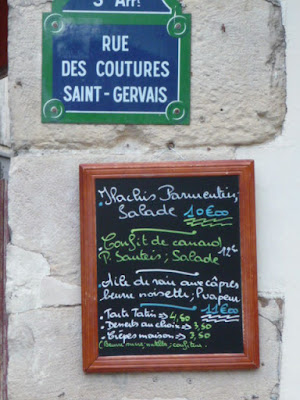 3e Arrt
RUE
DES COUTURES
SAINT-GERVAIS
Hachis Parmentier,
Salade 10€00
Confit de canard
P. Sautées; Salade 12€
Aile de raie aux câpres
beurre noisette; P. vapeur
11€00
Tarte Tatin => 4,50
Desserts au choix => 3,50
Crêpes maison => 3,50
(Beurre sucre, nutella, confiture